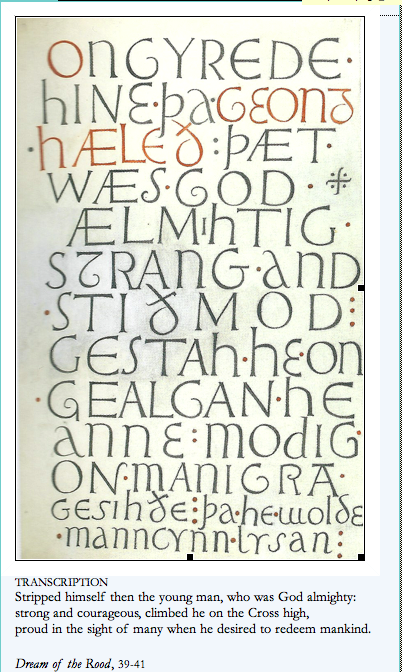 ONGYREDE·
hINE·þaGEONG
·hÆLEÐ:þÆT·
WÆS·GOD·
ÆLMIhTIG·
STRANG·AND
·STIÐMOD:
GESTAhhEON
·GEALGAN·hE
anNE:MODIG
ON·MANIGRA·
GESIhÐE:þa·he·wolde
·manncynn·lysan:
TRANSCRIPTION
Stripped himself then the young man, who was God almighty:
strong and courageous, climbed he on the Cross high,
proud in the sight of many when he desired to redeem mankind.
Dream of the Rood, 39-41